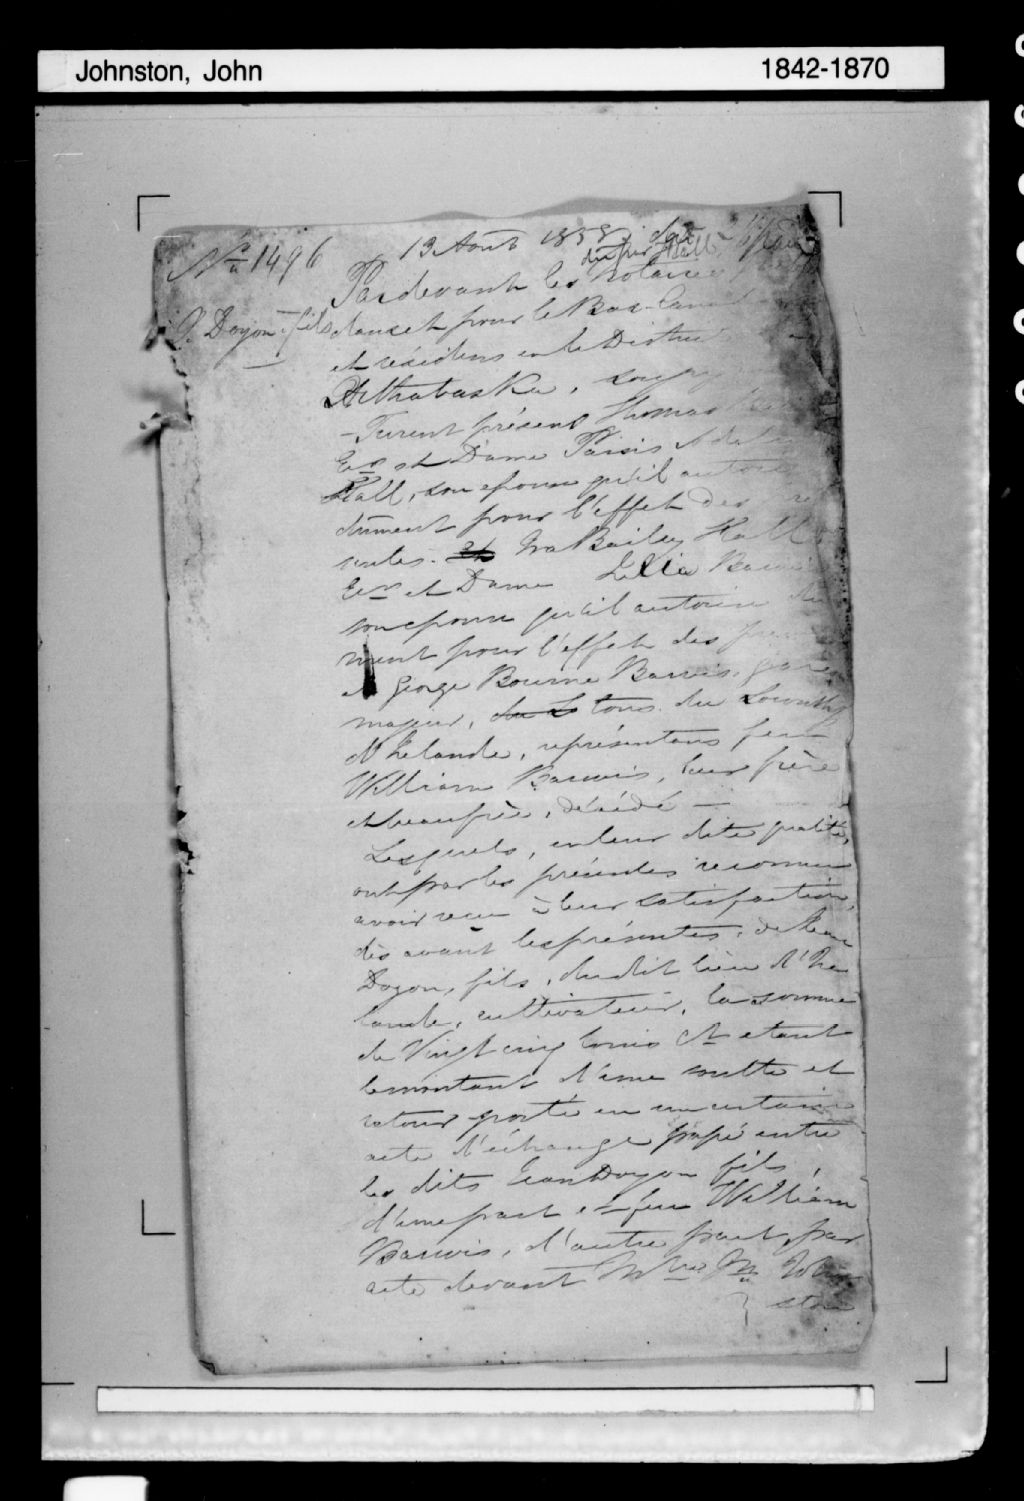 Johnston, John 1842-1870
No 1496
13 Août
Pardevant les Notaires
J. Doyon fils
dans et pour le Bas-Canada
et résidens en le District
Arthabaska,
Furent présens Thomas
Ecr et Dame Parsis Adel
Hall, son epouse qu'il autorise
dûment pour l'effet des
sentes. Ira Bailey Hall
Ecr et Dame Barwis
son epouse qu'il autorise du
ment pour l'effet des
et George Bourne Barwis, garçon
majeur, tous du Township
d'Irlande, représentans feu
William Barwis, leur frère
et beaufrère, décédé —
Lesquels, en leur dite qualité,
ont par les présentes reconnu
avoir reçu à leur satisfaction,
dès avant les présentes, de Jean
Doyon, fils, du dit lieu d'Ir
lande, cultivateur, la somme
de Vingt cinq louis Ct etant
le montant d'une soulte et
retour porté en un certain
acte d'échange passé entre
les dits Jean Doyon fils,
d'une part et feu William
Barwis, d'autre part, par
acte devant Mtre Jn John
ston